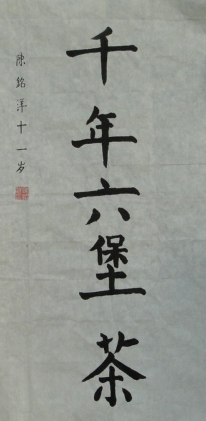 千年六堡茶
陈铭洋十一岁